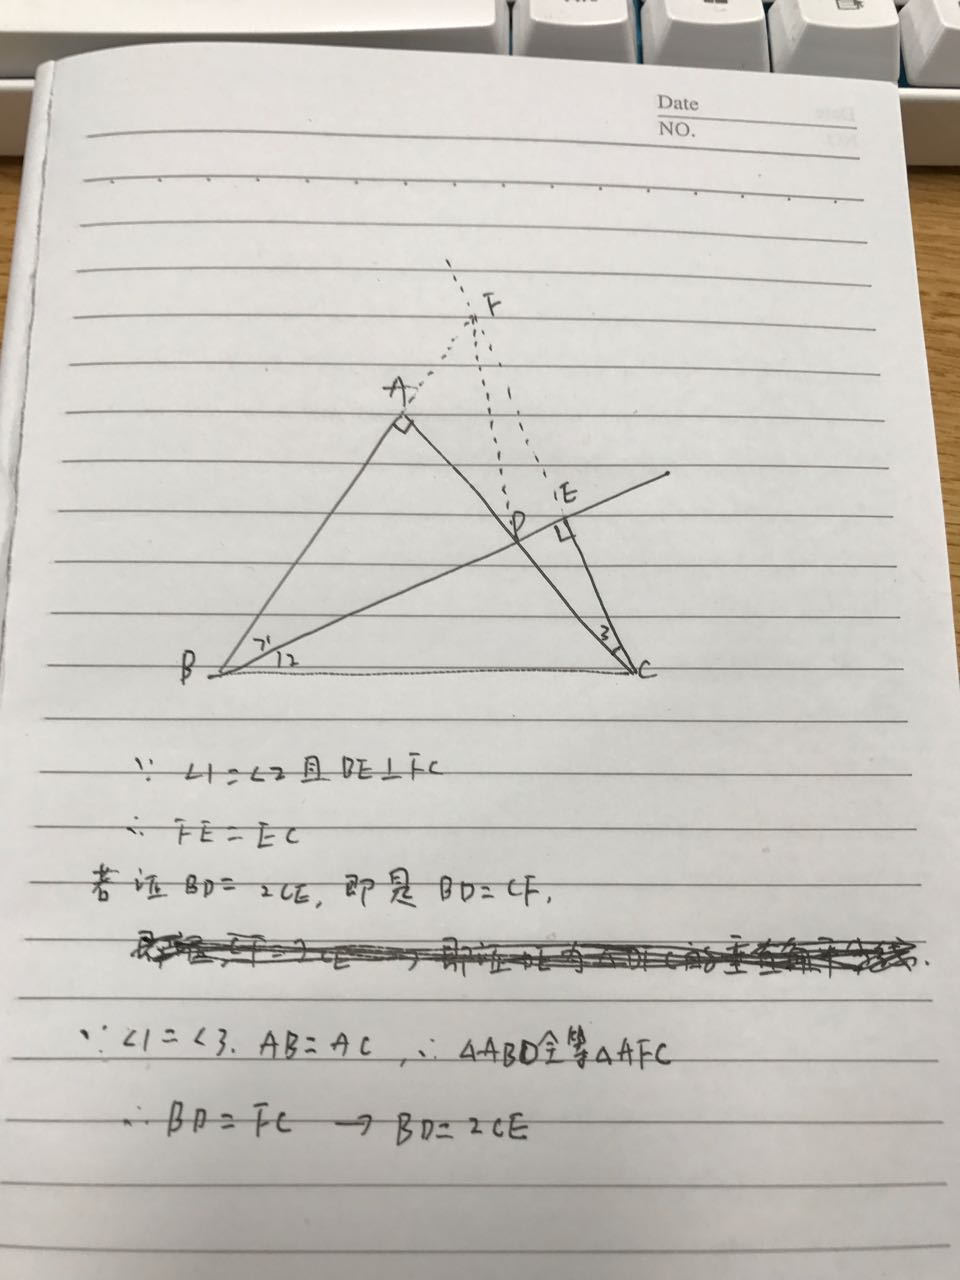 Date
NO.
F
A
E
D
B
1
2
3
C
∵ ∠1=∠2且BE⊥FC
∴ FE=EC
若证BD=2CE,即是BD=CF.
∵ ∠1=∠3. AB=AC, ∴ △ABD全等△AFC
∴ BD=FC → BD=2CE